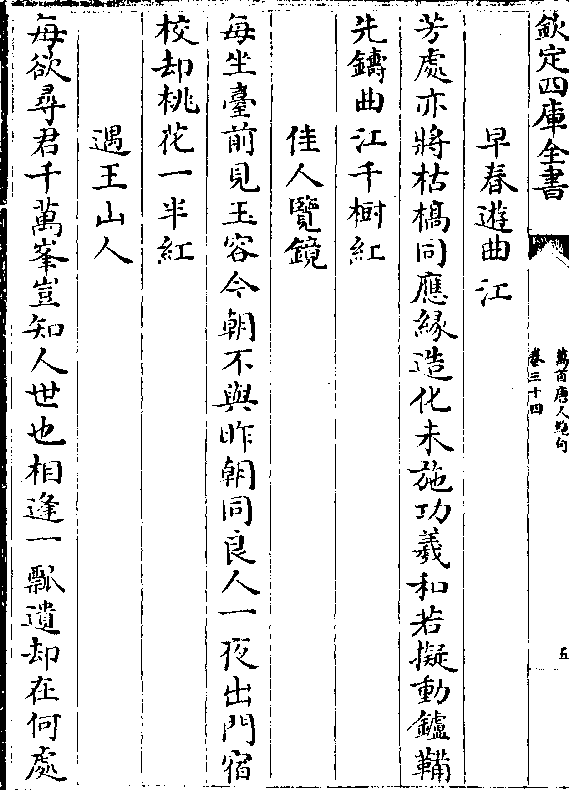 欽定四庫全書
萬首唐人絶句
卷三十四
五
早春遊曲江
芳處亦將枯槁同應緣造化未施功羲和若擬動鑪鞴
先鑄曲江千樹紅
佳人覽鏡
每坐臺前見玉容今朝不與昨朝同良人一夜出門宿
校却桃花一半紅
遇王山人
每欲尋君千萬峯豈知人世也相逢一瓢遺却在何處